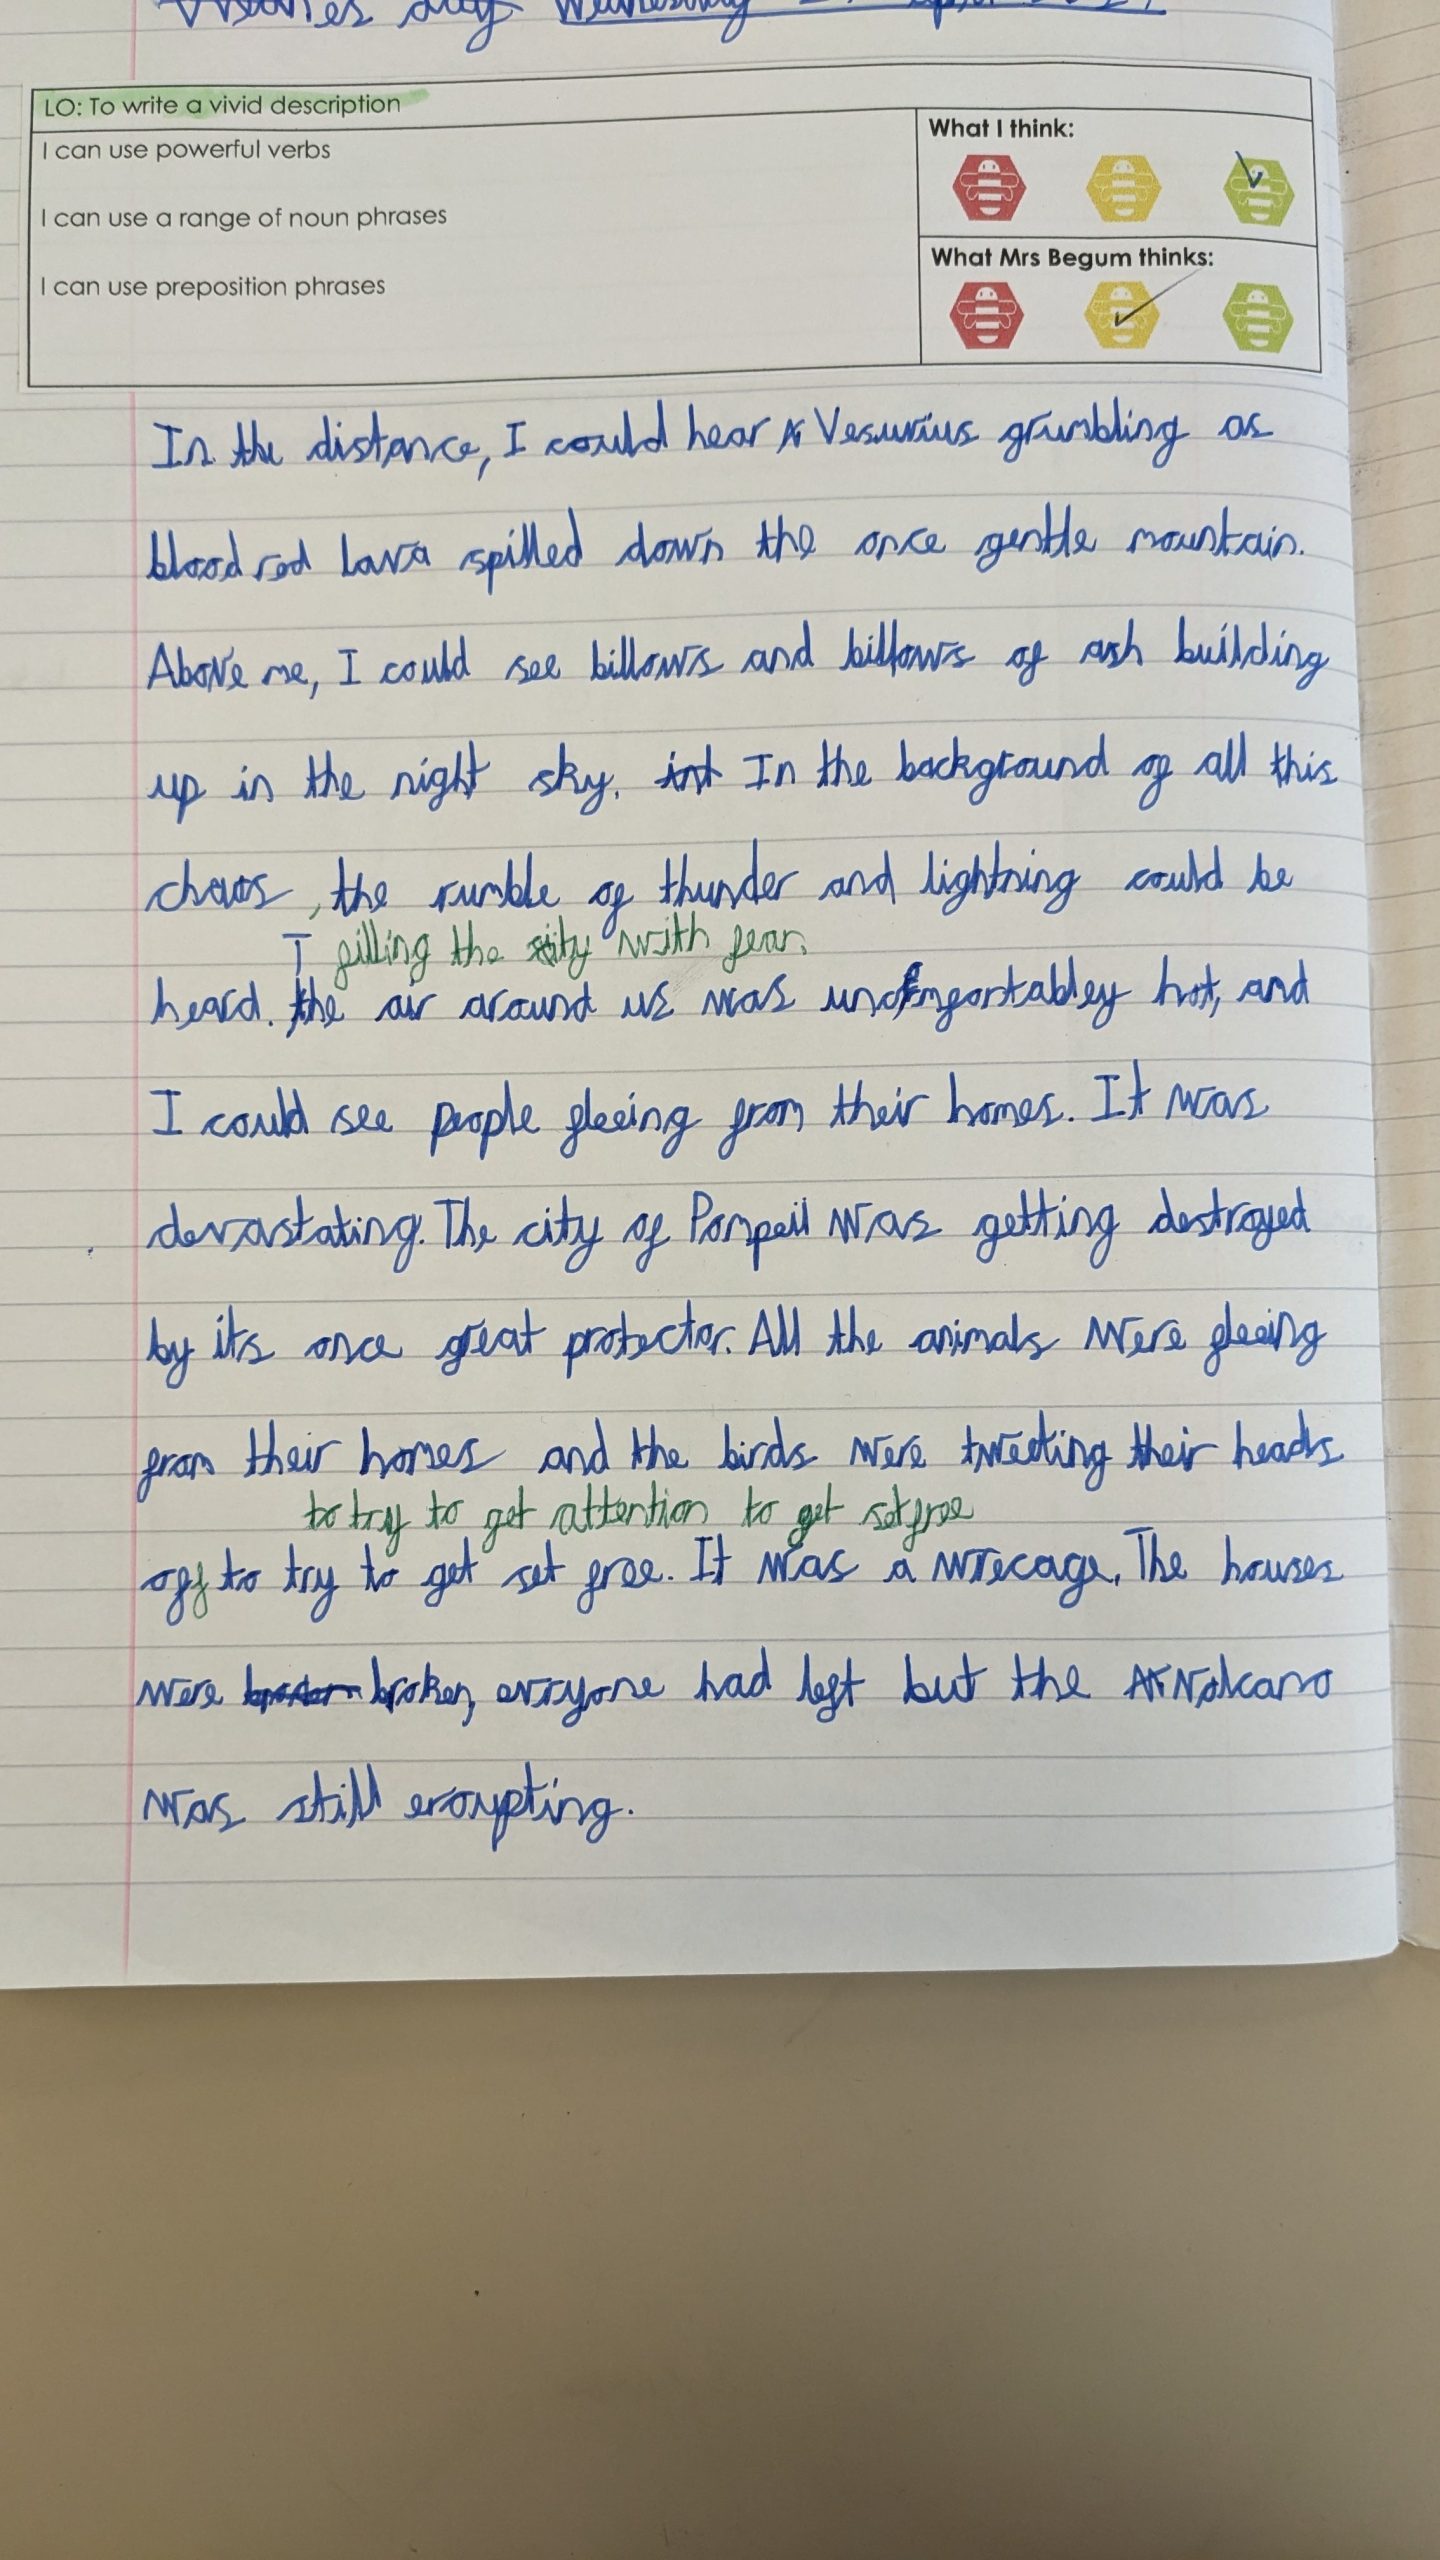 LO: To write a vivid description
I can use powerful verbs
I can use a range of noun phrases
I can use preposition phrases
What I think:
What Mrs Begum thinks:
In the distance, I could hear Vesuvius grumbling as
blood red lava spilled down the once gentle mountain.
Above me, I could see billows and billows of ash building
up in the night sky. int In the background of all this
chaos, the rumble of thunder and lightning could be
filling the city with fear.
heard. The air around us was uncofmfortabley hot, and
I could see people fleeing from their homes. It was
devastating. The city of Pompeii was getting destroyed
by its once great protector. All the animals were fleeing
from their homes and the birds were tweeting their heads
to try to get attention to get set free
off to try to get set free. It was a wrecage. The houses
were broken, evryone had left but the volcano
was still eroupting.